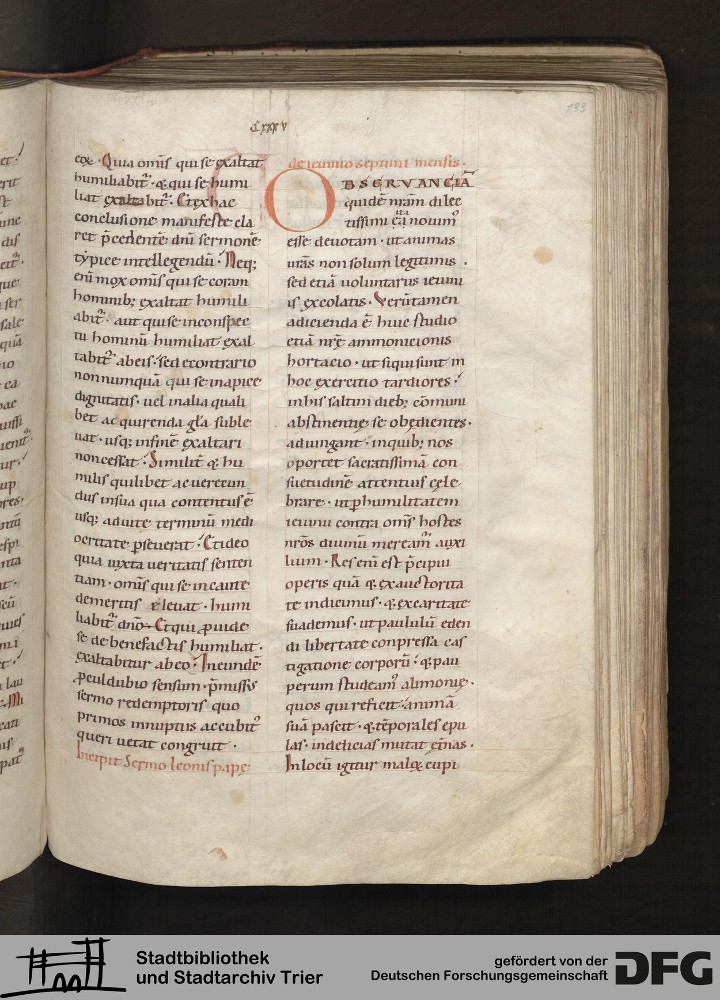 Cxxxv
133
eꝫ. Quia om̅s qui se exaltat
humiliabit᷑. & qui se humi
liat exaltabit᷑. Et ex hac
conclusione manifeste cla
ret p̄cedente̅ dn̅i sermone̅
typice intellegendu̅. Neq;
eni̅ mox om̅is qui se coram
hominib; exaltat humili
abit᷑. aut qui se in conspec
tu hominu̅ humiliat exal
tabit᷑ ab eis. sed econtrario
nonnumqua̅ qui se in apice
dignitatis. uel in alia quali
bet acquirenda gl̅a suble
uat. usq; in fine̅ exaltari
non cessat. Similit᷑ & hu
milis quilibet ac uerecun
dus in sua qua contentus e̅
usq; ad uite terminu̅ medi
ocritate ꝑseuerat. Et ideo
quia iuxta ueritatis senten
tiam. om̅is qui se incaute
de meritis eleuat. humi
liabit᷑ a dn̅o. Et qui ꝓuide
se de benefactis humiliat.
exaltabitur ab eo. In eunde̅
ꝓculdubio sensum. p̄missus
sermo redemptoris quo
primos in nuptiis accubit᷒
queri uetat congruit.
Incipit Sermo leonis pape
de ieiunio septimi mensis.
OBSERVANCIA̅
quide̅ n̅ram dilec
tissimi ita ea̅ nouim᷒
esse deuotam. ut animas
u̅ras non solum legitimis
sed etia̅ uoluntariis ieiuni
is excolatis. Veru̅tamen
adicienda e̅ huic studio
etia̅ n̅re̜ ammonicionis
hortacio. ut si qui sunt in
hoc exercitio tardiores.
in his saltim dieb; co̅muni
abstinentie̜ se obedientes.
adiungant. in quib; nos
oportet sacratissima̅ con
suetudine̅ attentius cele
brare. ut ꝑ humilitatem
ieiunii contra om̅s hostes
n̅ros diuinu̅ meream᷑ auxi
lium. Res eni̅ est p̄cipui
operis qua̅ & ex auctorita
te indicimus. & ex caritate
suademus. ut paululu̅ eden
di libertate conpressa cas
tigatione corporu̅. & pau
perum studeam᷒ alimonie̜.
quos qui reficit. anima̅
sua̅ pascit. & te̅porales epu
las. in delicias mutat et̅nas.
In locu̅ igitur male̜ cupi
Stadtbibliothek
und Stadtarchiv Trier
gefördert von der
Deutschen Forschungsgemeinschaft
DFG